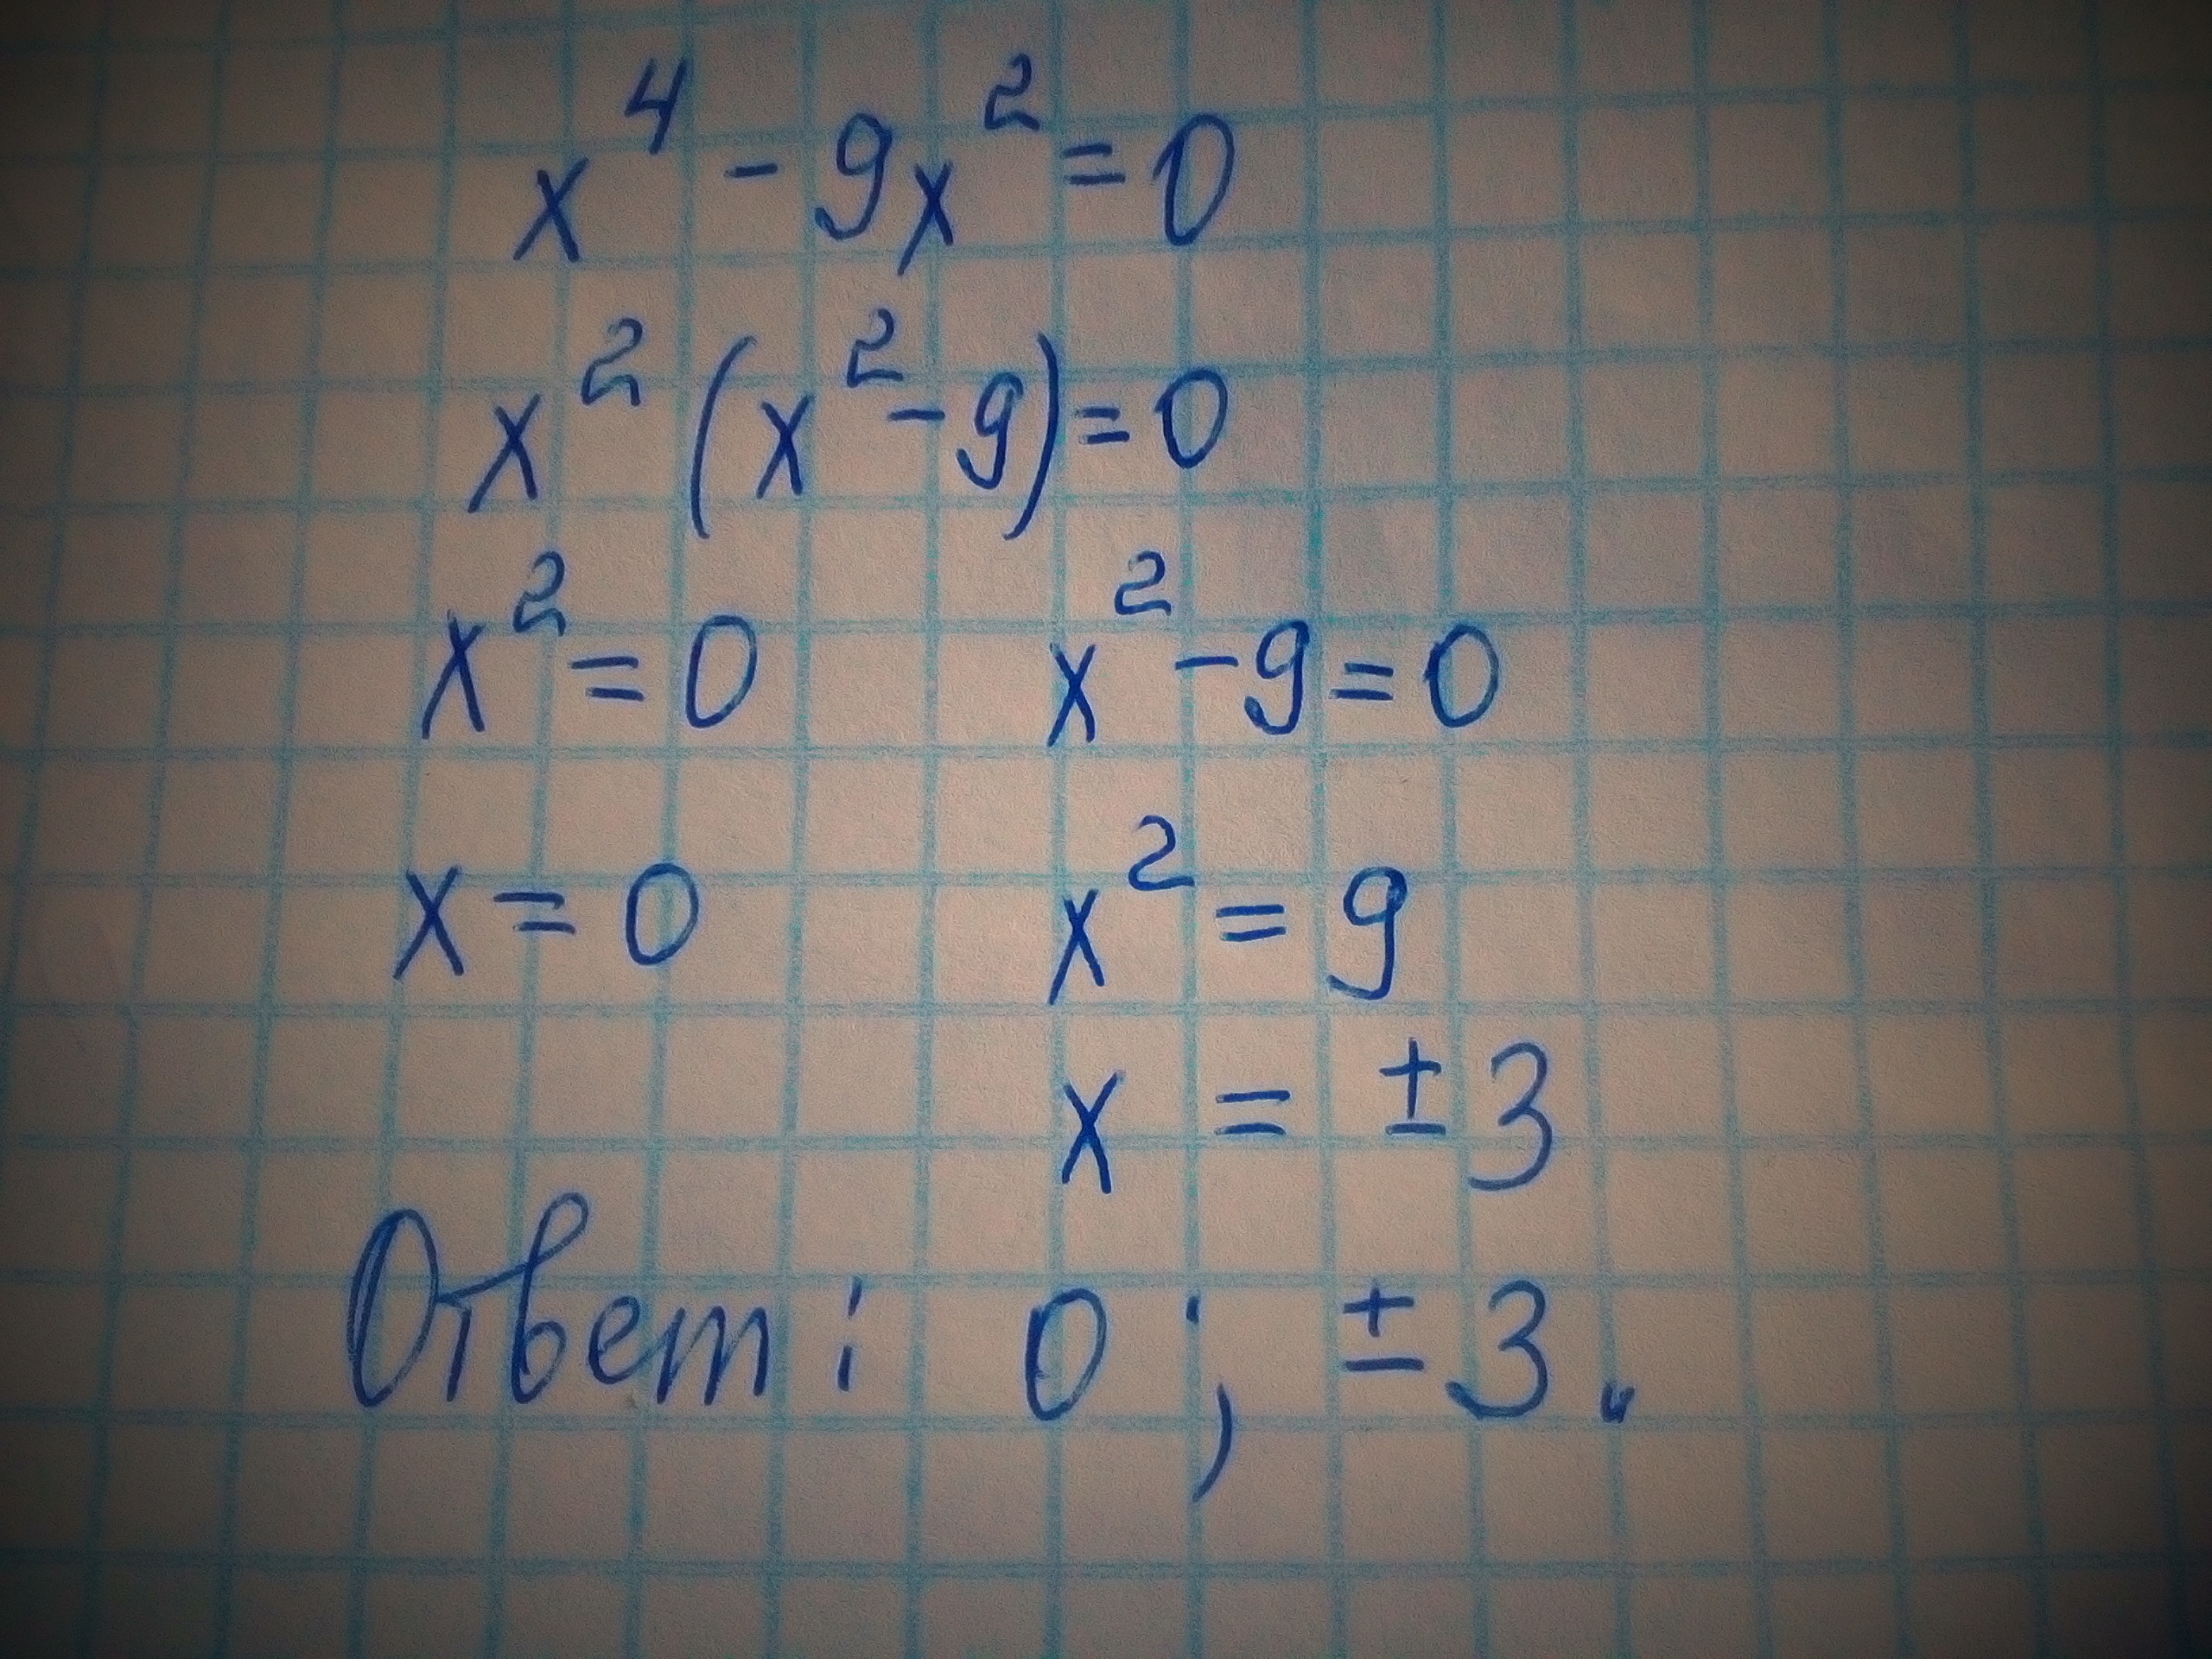 x⁴ - 9x² = 0
x² (x² - 9) = 0
x² = 0 x² - 9 = 0
x = 0 x² = 9
x = ± 3
Ответ: 0 ; ± 3.